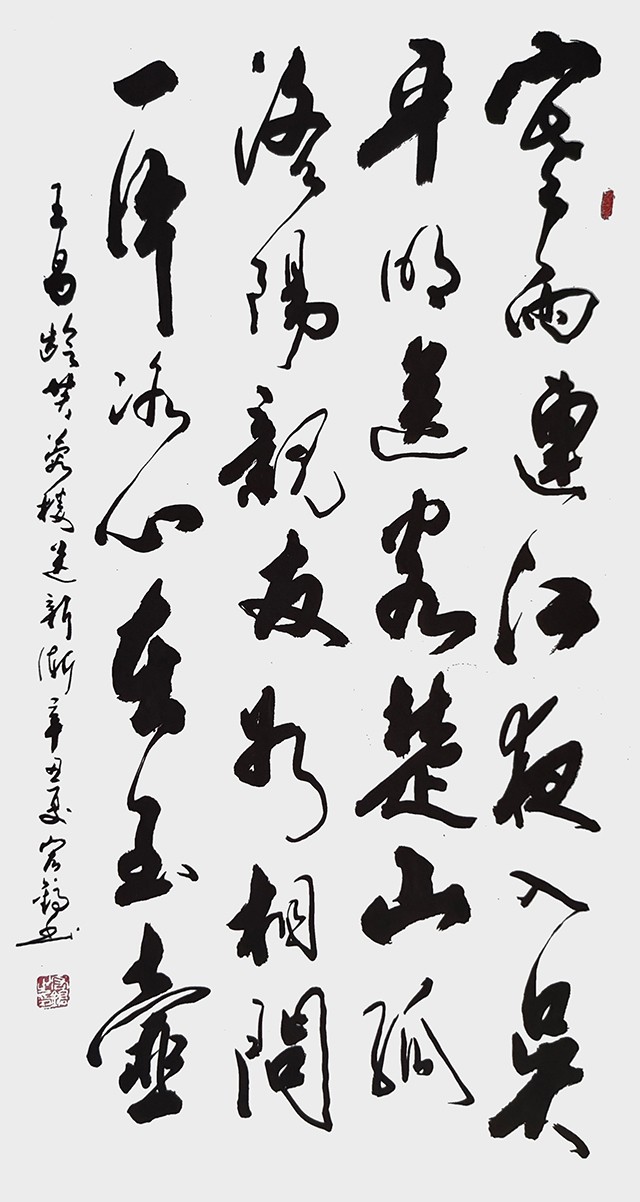 寒雨連江夜入吳
平明送客楚山孤
洛陽親友如相問
一片冰心在玉壺
王昌齡芙蓉樓送新漸辛丑夏宏书